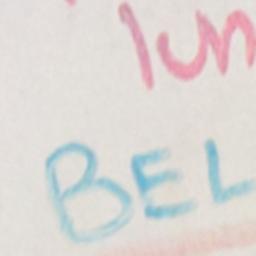 lun
BEL